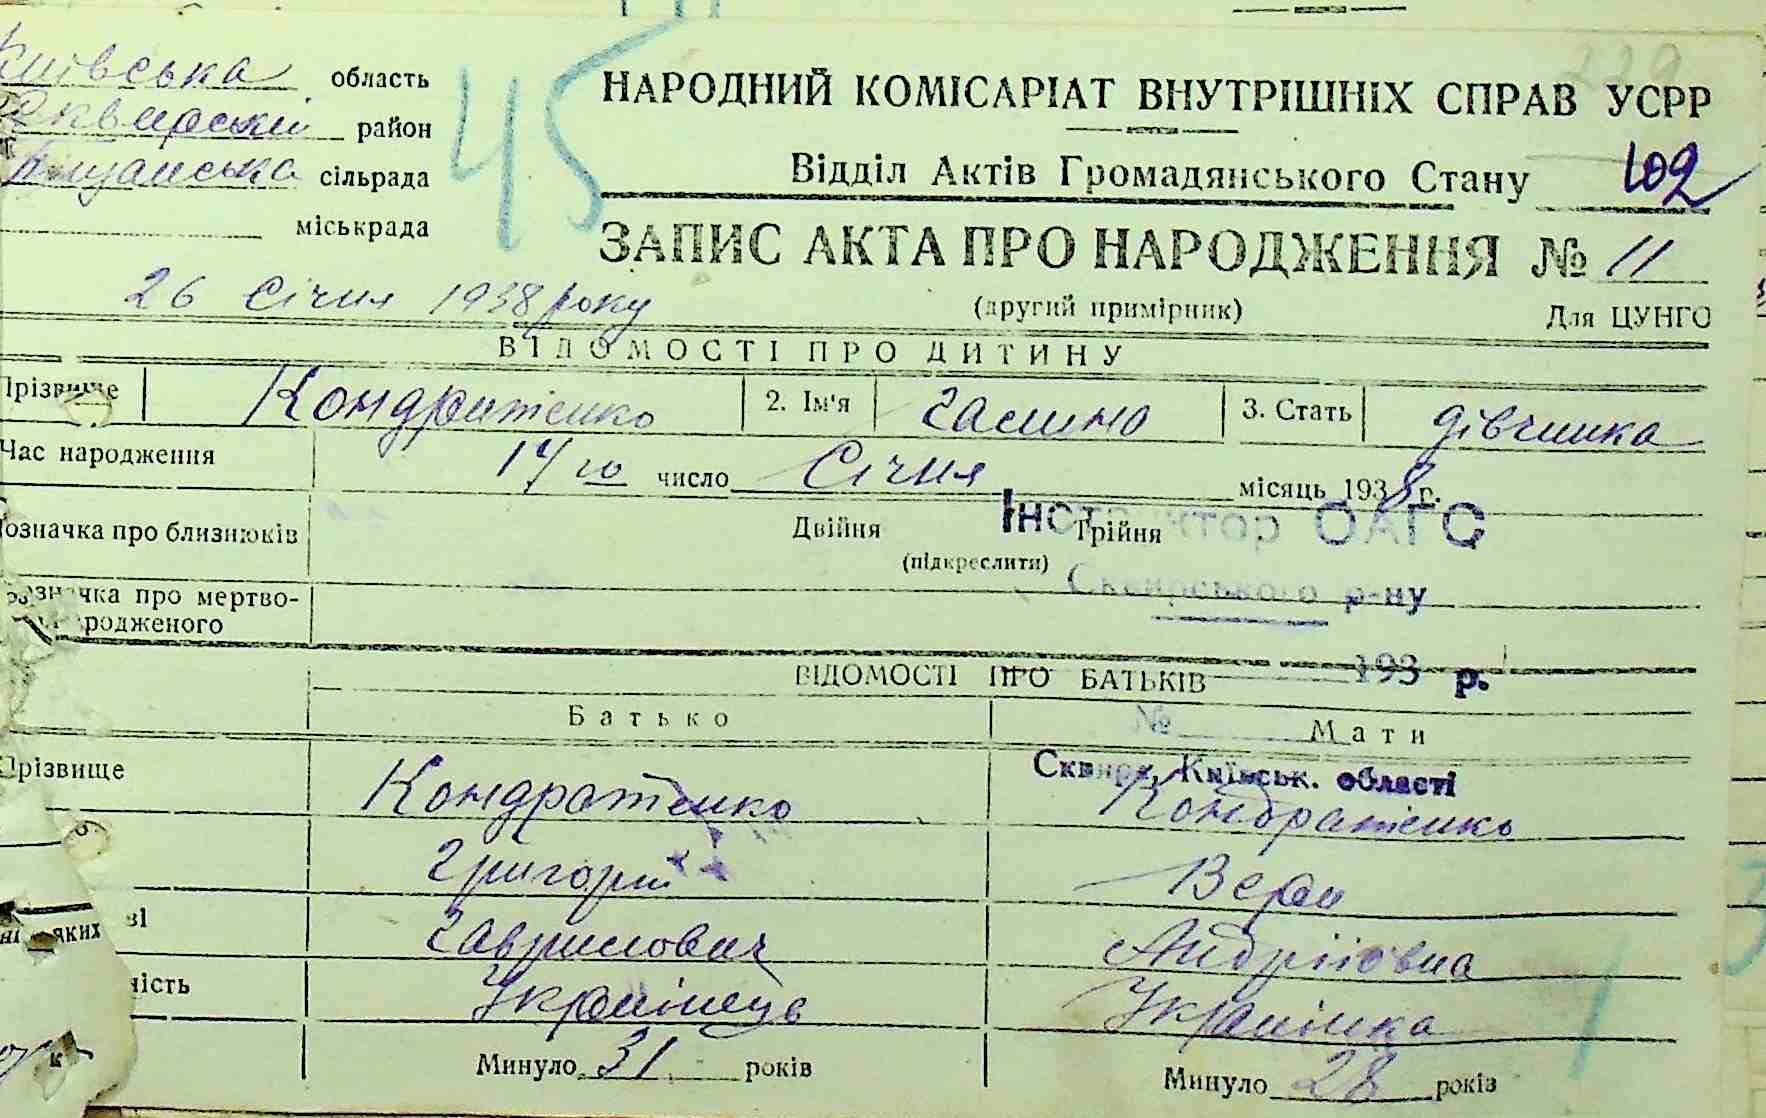 Київська область
Сквирський район
сільрада
міськрада
45
229
НАРОДНИЙ КОМІСАРІАТ ВНУТРІШНІХ СПРАВ УСРР
Відділ Актів Громадянського Стану 102
ЗАПИС АКТА ПРО НАРОДЖЕННЯ № 11
26 Січня 1938 року (другий примірник) Для ЦУНГО
ВІДОМОСТІ ПРО ДИТИНУ
Прізвище Кондратенко 2. Ім'я Галина 3. Стать дівчинка
Час народження 14го число Січня місяць 1938 р.
Позначка про близнюків Двійня Трійня
(підкреслити)
Інструктор ОАГС
Сквирського р-ну
Позначка про мертво-
народженого
193 р.
ВІДОМОСТІ ПРО БАТЬКІВ
Батько Мати
№
Сквира, Київськ. області
Прізвище Кондратенко Кондратенко
Григорій Вера
ві Гаврилович Андріївна
яких
ність Українець Українка
Минуло 31 років Минуло 28 років